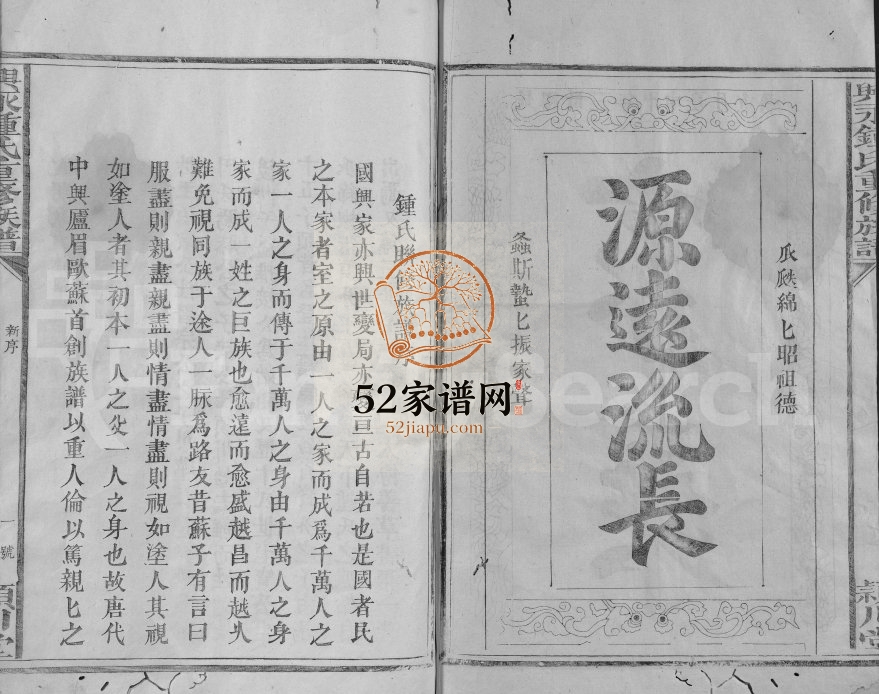 興永鍾氏重修族譜
穎川堂
瓜瓞綿匕昭祖德
源遠流長
螽斯蟄匕振家聲
鍾氏聯修族譜序
國興家亦興世變局亦 亘古自若也是國者民
之本家者室之原由一人之家而成爲千萬人之
家一人之身而傳于千萬人之身由千萬人之身
家而成一姓之巨族也愈遠而愈盛越昌而越火
難免視同族于途人一脉爲路友昔蘇子有言曰
服盡則親盡親盡則情盡情盡則視如塗人其視
如塗人者其初本一人之身也故唐代
中興廬眉歐蘇首創族譜以重人倫以篤親匕之
興永鍾氏重修族譜
新序
一號
穎川堂
52家谱网
52jiapu.com